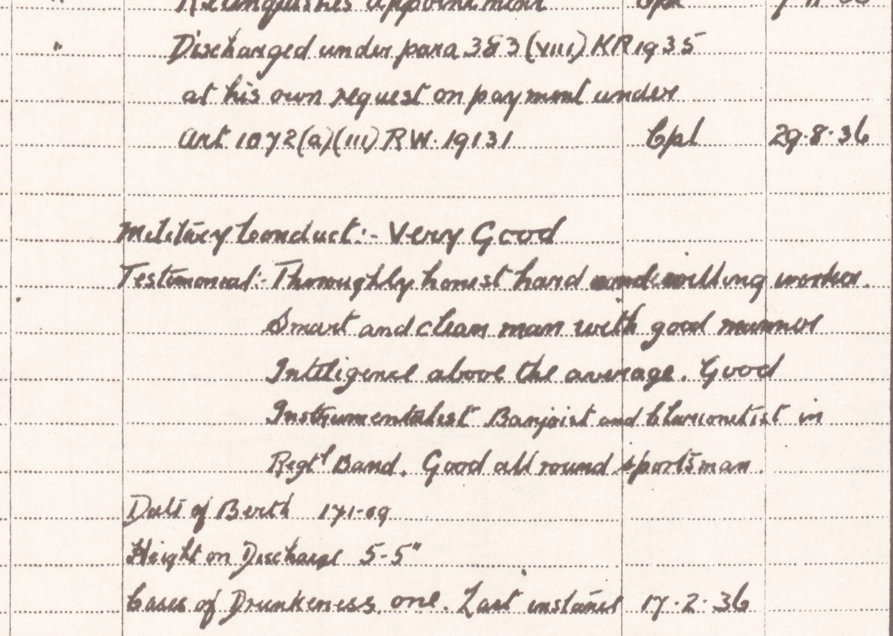 Relinquishes appointment Cpl
" Discharged under para 383(viii) KR 1935
at his own request on payment under
Art 1072(a)(iii) RW. 1931 Cpl 29.8.36
Military Conduct:- Very Good
Testimonial:- Thoroughly honest hard and willing worker.
Smart and clean man with good manner
Inteligence above the average. Good
Instrumentalist Banjoist and Clarionetist in
Regtl Band. Good all round sportsman.
Date of Berth 171-09
Height on Discharge 5-5"
Cases of Drunkeness. one. Last instance 17.2.36